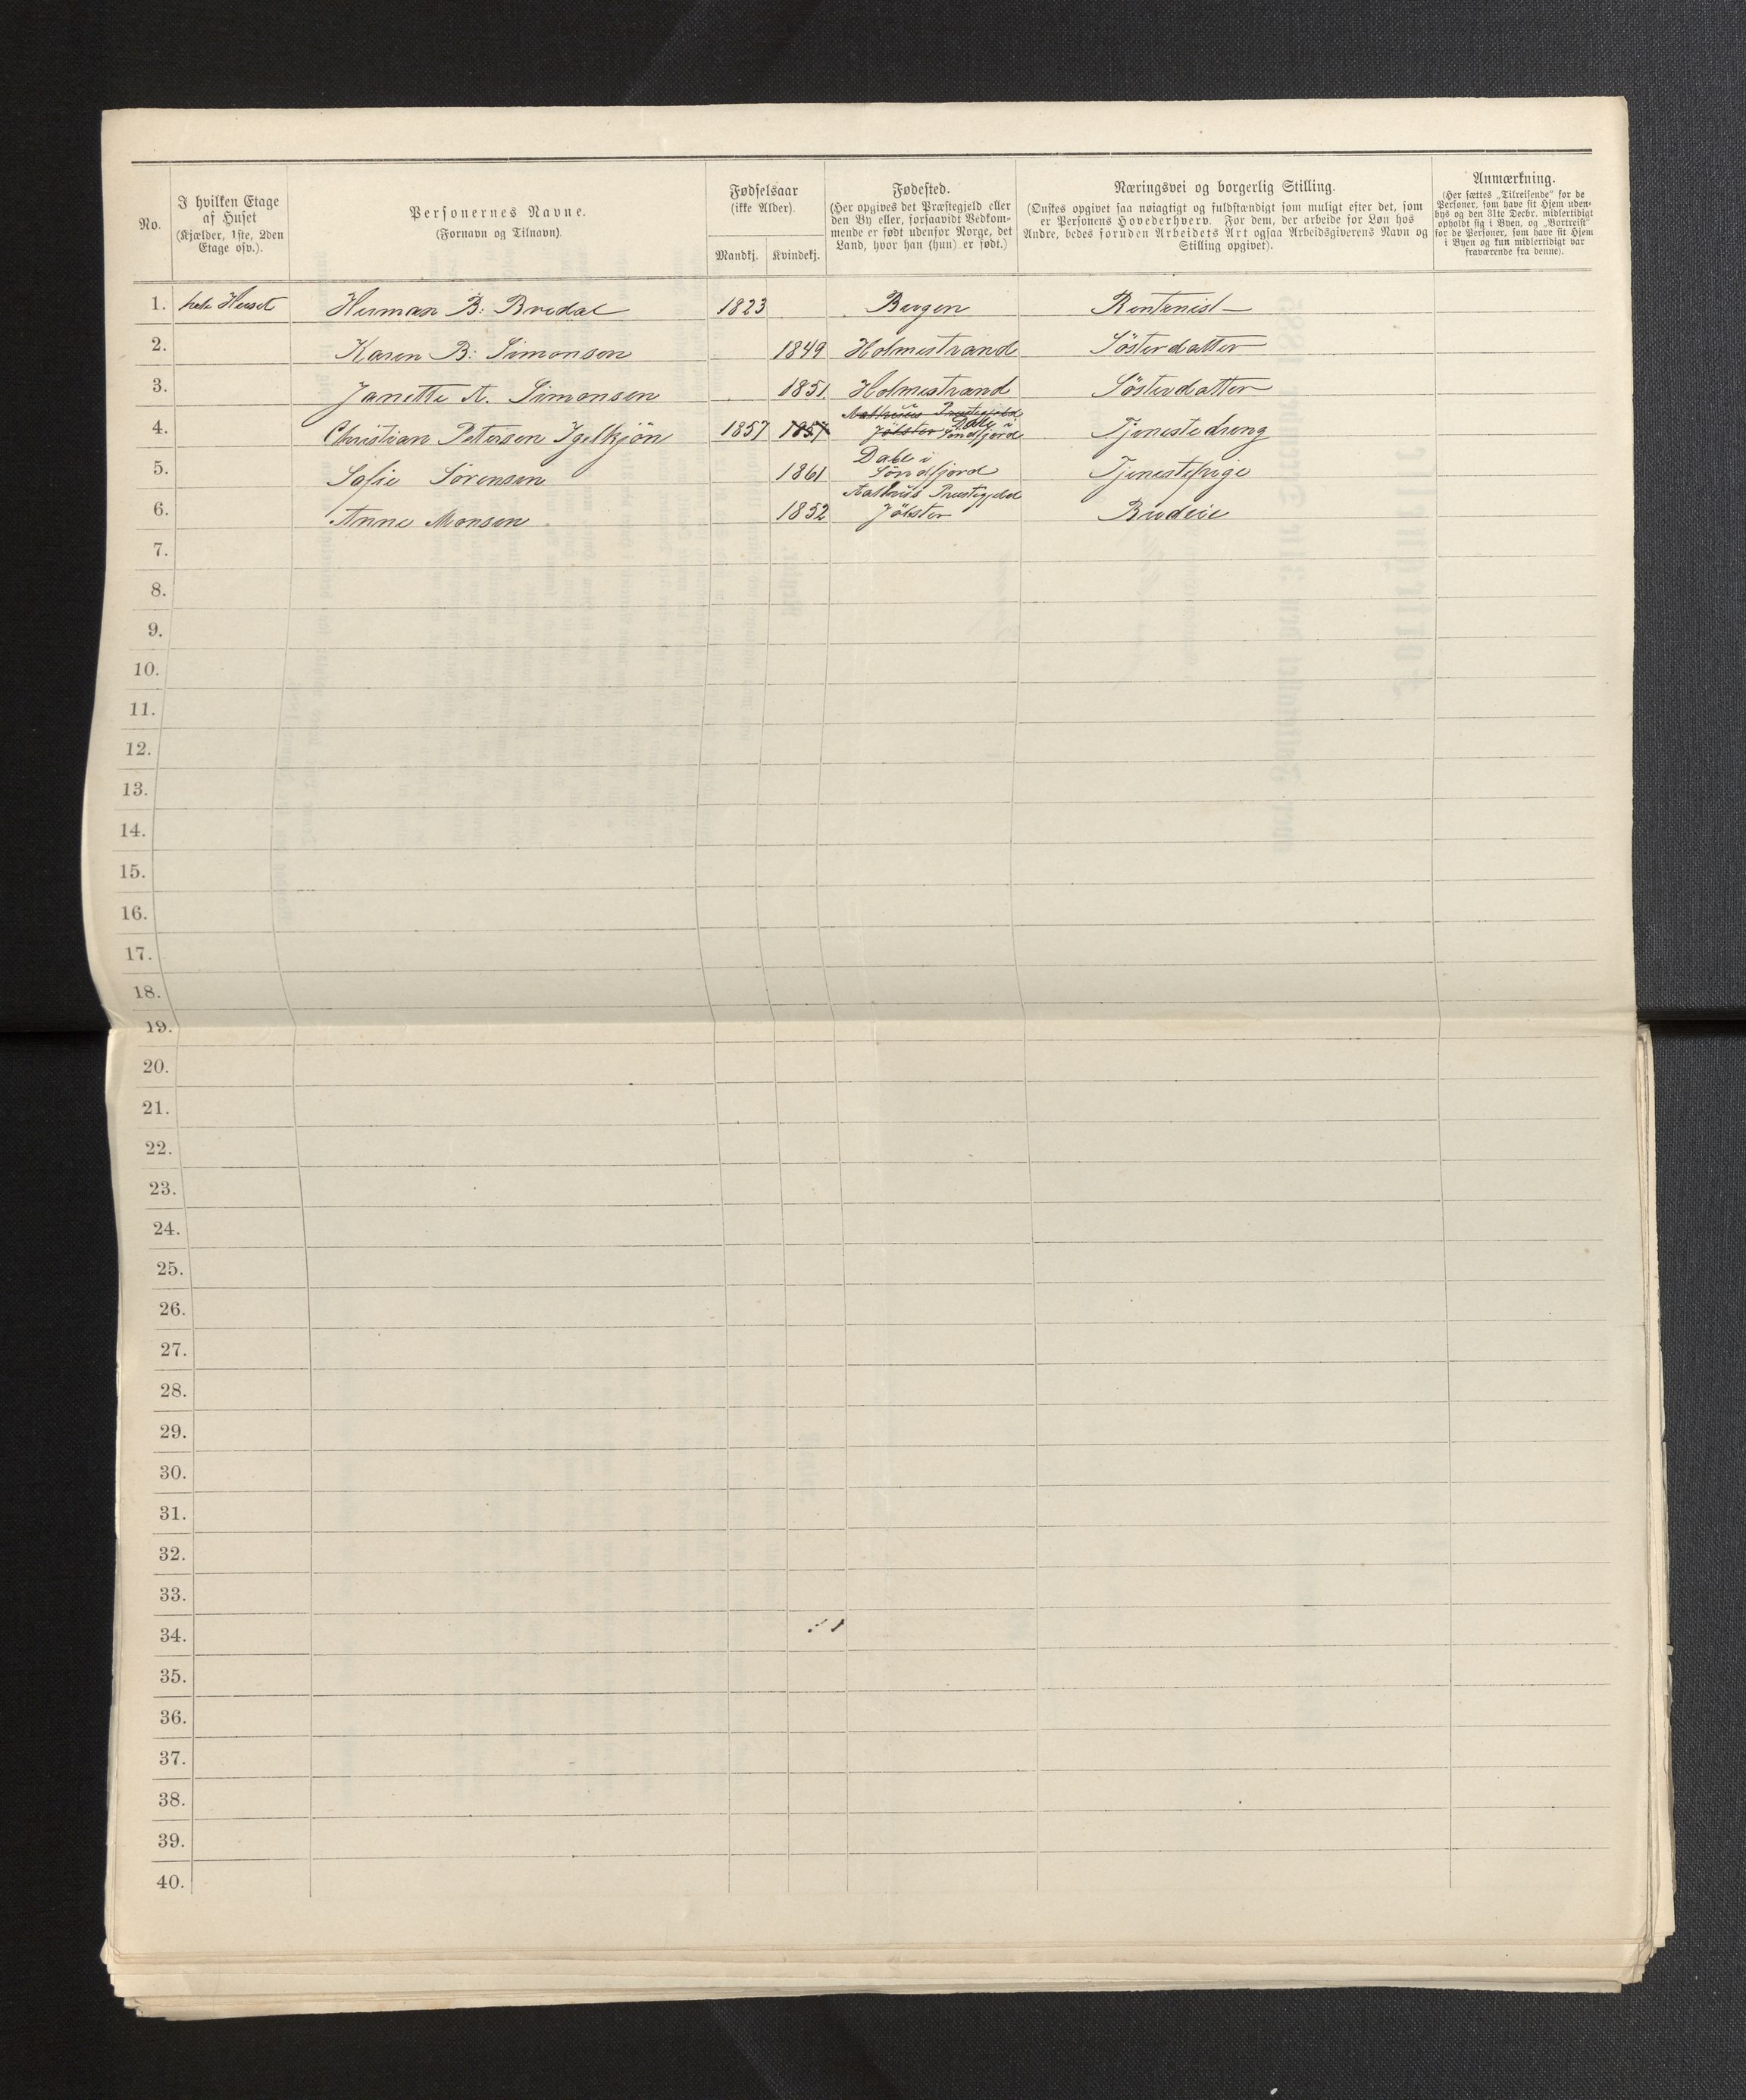 No.
I hvilken Etage
af Huset
(Kjælder, 1ste, 2den
Etage osv.).
Personernes Navne.
(Fornavn og Tilnavn).
Fødselsaar
(ikke Alder).
Mandkj. Kvindekj.
Fødested.
(Her opgives det Præstegjeld eller
den By eller, forsaavidt Vedkom-
mende er født udenfor Norge, det
Land, hvor han (hun) er født.)
Næringsvei og borgerlig Stilling.
(Ønskes opgivet saa nøiagtigt og fuldstændigt som muligt efter det, som
er Personens Hovederhverv. For dem, der arbeide for Løn hos
Andre, bedes foruden Arbeidets Art ogsaa Arbeidsgiverens Navn og
Stilling opgivet).
Anmærkning.
(Her sættes „Tilreisende" for de
Personer, som have sit Hjem uden-
bys og den 31te Decbr. midlertidigt
opholdt sig i Byen, og „Bortreist"
for de Personer, som have sit Hjem
i Byen og kun midlertidigt var
fraværende fra denne).
1. hele Huset Herman B: Bredal 1823 Bergen Rentenist
2. Karen B: Simonsen 1849 Holmestrand Sösterdatter
3. Janette A. Simonsen 1851 Holmestrand Sösterdatter
4. Christian Petersen Igelkjön 1857 1857 Jölster Dale i Söndfjord Tjenestedreng
5. Sofie Sörensen 1861 Dale i Söndfjord Tjenestepige
6. Anne Monsen 1852 Præstegjeld Jölster Budeie
7.
8.
9.
10.
11.
12.
13.
14.
15.
16.
17.
18.
19.
20.
21.
22.
23.
24.
25.
26.
27.
28.
29.
30.
31.
32.
33.
34.
35.
36.
37.
38.
39.
40.